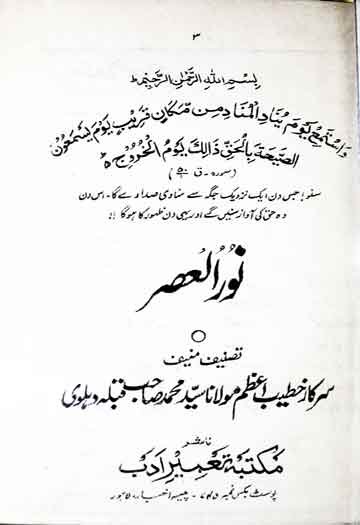 ۳
بسم اللہ الرحمٰن الرحیم ط
وَاسْتَمِعْ يَوْمَ يُنَادِ الْمُنَادِ مِنْ مَّكَانٍ قَرِيْبٍ يَّوْمَ يَسْمَعُوْنَ
الصَّيْحَةَ بِالْحَقِّ ذَالِكَ يَوْمُ الْخُرُوْجِ ۵
(سورہ - ق پ)
سنو! جس دن ایک نزدیک جگہ سے منادی صدا دے گا۔ اس دن
وہ حق کی آواز سنیں گے اور یہی دن ظہور کا ہوگا !!
نورُ العصر
تصنیف منیف
سرکار خطیب اعظم مولانا سید محمد صاحب قبلہ دہلوی
ناشر
مکتبۂ تعمیرِ ادب
پوسٹ بکس نمبر ۷۴۵ - پیسہ اخبار، لاہور